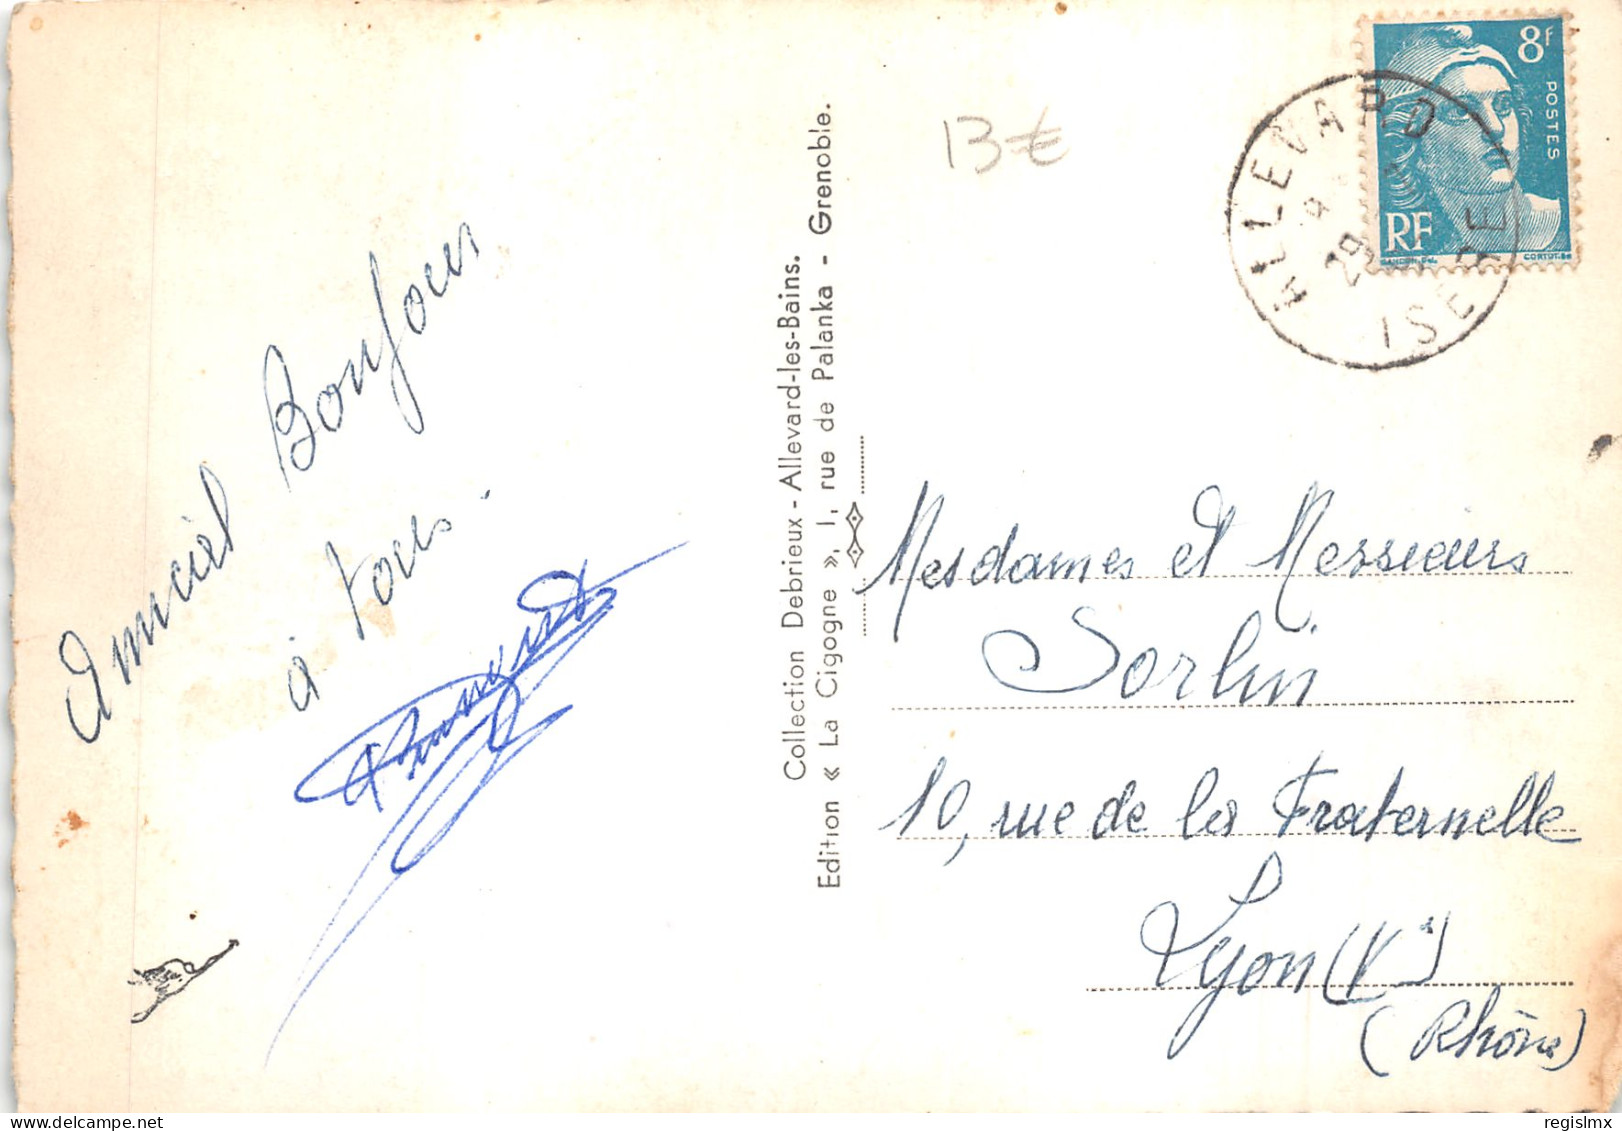 Amical Bonjour
à tous.
Collection Debrieux - Allevard-les-Bains.
Edition « La Cigogne », 1, rue de Palanka - Grenoble.
13 €
8F
POSTES
RF
GANDON
CORTOT
ALLEVARD
9
29
ISERE
Mesdames et Messieurs
Sorlin
10, rue de la Fraternelle
Lyon (Ve)
(Rhône)
delcampe.net
regislmx